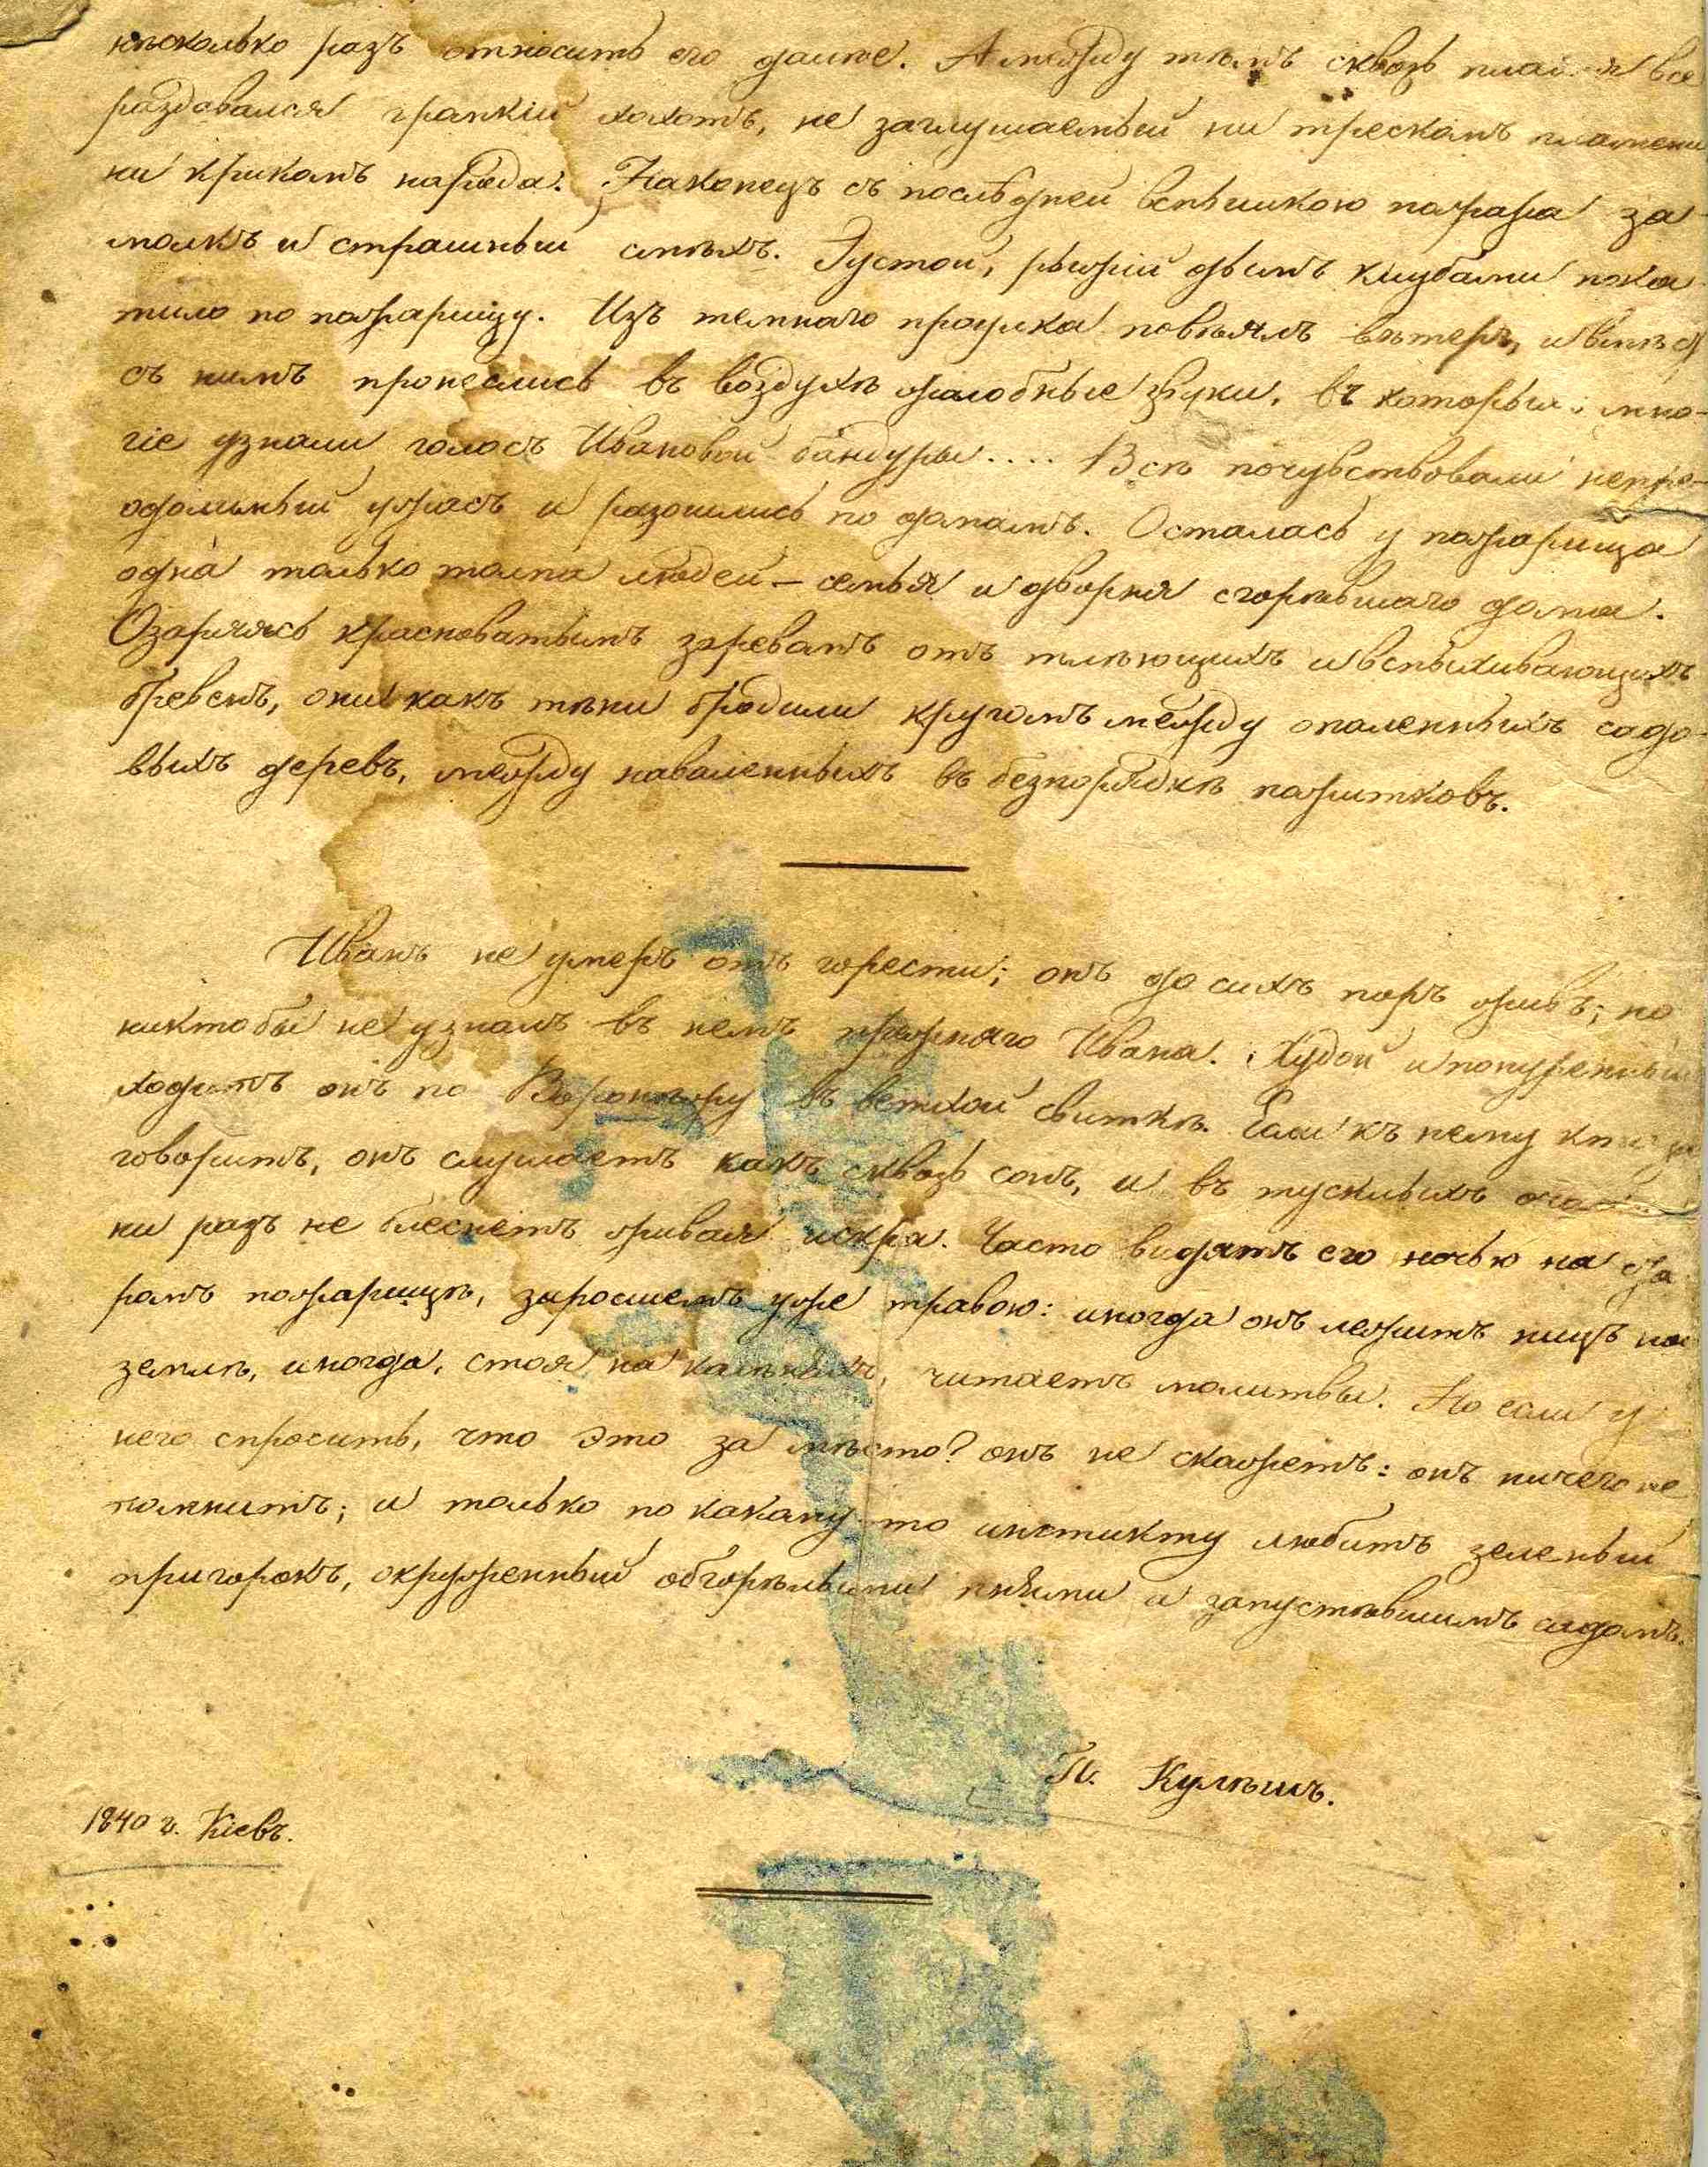 нѣсколько разъ относить его далѣе. А между тѣмъ сквозь пламя все
раздавался громкій хохотъ, не заглушаемый ни трескомъ пламени
ни крикомъ народа. Наконецъ съ послѣдней вспышкою пожара за
молкъ и страшный смѣхъ. Густой, рыжій дымъ клубами пока
тило по пожарищу. Изъ темнаго проулка повѣялъ вѣтеръ, и вмѣстѣ
съ нимъ пронеслись въ воздухѣ жалобные звуки, въ которыхъ мно-
гіе узнали голосъ Ивановой бандуры.... Всѣ почувствовали непре-
одолимый ужасъ и разошлись по домамъ. Осталась у пожарища
одна только толпа людей — семья и дворня сгорѣвшаго дома.
Озаряясь красноватымъ заревомъ отъ тлѣющихъ и вспыхивающихъ
бревенъ, они какъ тѣни бродили кругомъ между опаленныхъ садо-
выхъ деревъ, между наваленныхъ въ безпорядкѣ пожитковъ.
Иванъ не умеръ отъ горести; онъ до сихъ поръ живъ; но
никто бы не узналъ въ немъ прежняго Ивана. Худой и понуренный
ходитъ онъ по Воронежу въ ветхой свиткѣ. Если къ нему кто
говоритъ, онъ слушаетъ какъ сквозь сонъ, и въ тусклыхъ очахъ
ни разъ не блеснетъ живая искра. Часто видятъ его ночью на ста
ромъ пожарищѣ, заросшемъ уже травою: иногда онъ лежитъ ницъ на
землѣ, иногда, стоя на колѣняхъ, читаетъ молитвы. Но если у
него спросить, что это за мѣсто? онъ не скажетъ: онъ ничего не
помнитъ; и только по какому-то инстикту любитъ зеленый
пригорокъ, окруженный обгорѣлыми пнями и запустѣвшимъ садомъ.
П. Кулѣшъ.
1840 г. Кіевъ.